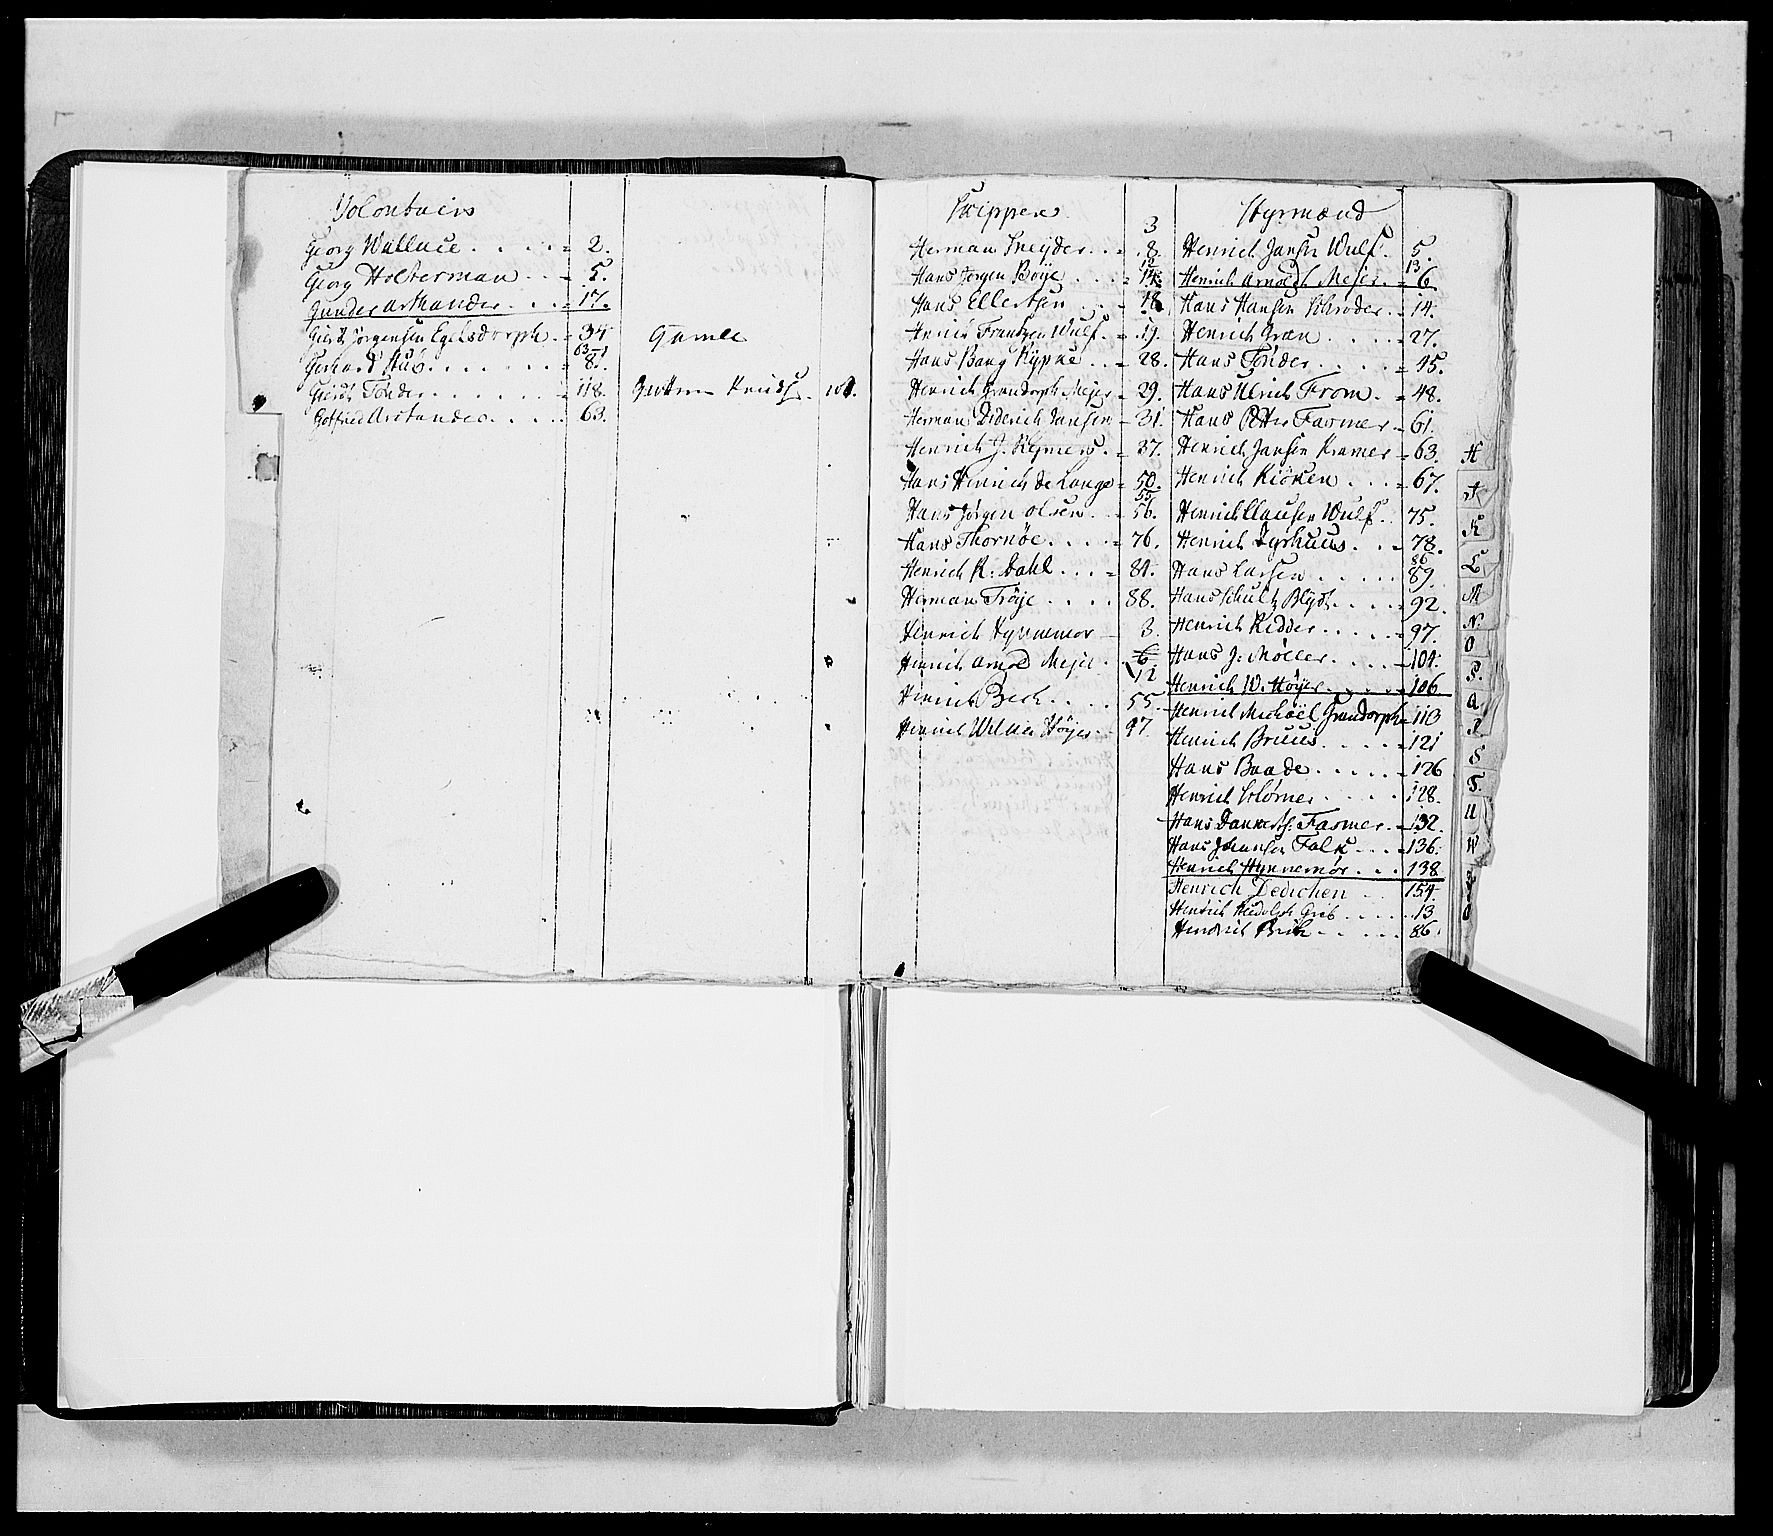 Volontairs
Georg Wallace 2.
Georg Holterman 5.
Gunder Arthander 17.
Giert Jörgensen Egelsdorph 34
63
Gerhard Stub 8.
Giert Tönder 118.
Gotfried 63.
Gamle
Knuds 101.
Skippere
3
Herman Sneyder 8.
12
Hans Jörgen Böye 14.
Hans Ellertsen 18
Henrich Frantzen Wulf 19.
Hans Bang Rÿpke 28.
Henrich Grandorph Mejer 29.
Herman Diderich Jansen 31.
Henrich J. Reymers 37.
Hans Henrich de Lange 50.
55
Hans Jörgen Olsen 56.
Hans Thornöe 76.
Henrich R. Dahl 81.
Herman Tröje 88.
Henrich Hynnemor 3.
Henrich Arnold Mejer 6
12
Henrich Beck 55.
Henrich Wilken Höyer 97
Styrmænd
Henrich Jansen Wulf 5.
13
Henrich Arnoldt Mejer 6
Hans Hansen Schröder 14.
Henrich Gran 27.
Hans Tönder 45.
Hans Ulrich From 48.
Hans Petter Fasmer 61.
Henrich Jansen Kramer 63.
Henrich Kiöken 67.
Henrich Clausen Wulf 75.
Henrich Dyrhuus 78.
86
Hans Larsen 89.
Hans Schultz Blydt 92.
Henrich Ridder 97.
Hans J. Möller 104.
Henrich W. Höyer 106
Henrich Michael Grandorph 113
Henrich Bruus 121
Hans Baade 126
Henrich Schlömer 128.
Hans Dankerts. Fasmer 132.
Hans Johansen Falk 136.
Henrich Hynnemör 138
Henrich Dedichen 154.
Henrich Rudolph Grib 13
Hendrich Beck 86.
H
K
L
M
N.
O
P.
Q
R
S
T.
U
W
Ö